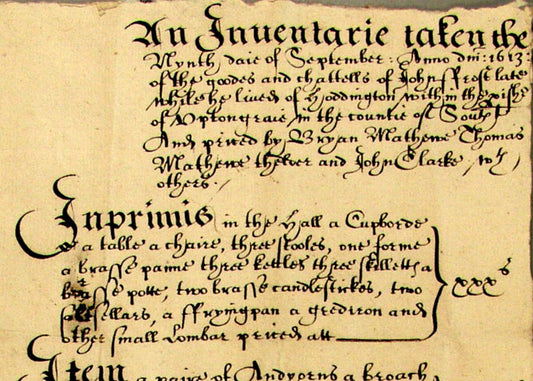 An Inuentarie taken the
Nynth daie of September: Anno dni: 1613:
of the goodes and chattells of John ffrost late
while he lived of Hoddington within the pishe
of Vptongraie in the countie of South
And prised by Bryan Mathewe Thomas
Mathewe thelder and John Clarke wth
others./
Inprimis in the Hall a Cupborde
a table a chaire, three stooles, one forme
a brasse panne three kettles three skilletts a
brasse potte, two brasse candlestickes, two
saltsellars, a ffryingpan a grediron and
other small Lombar prised att
xxxs
Item a paire of Andyorns a broach